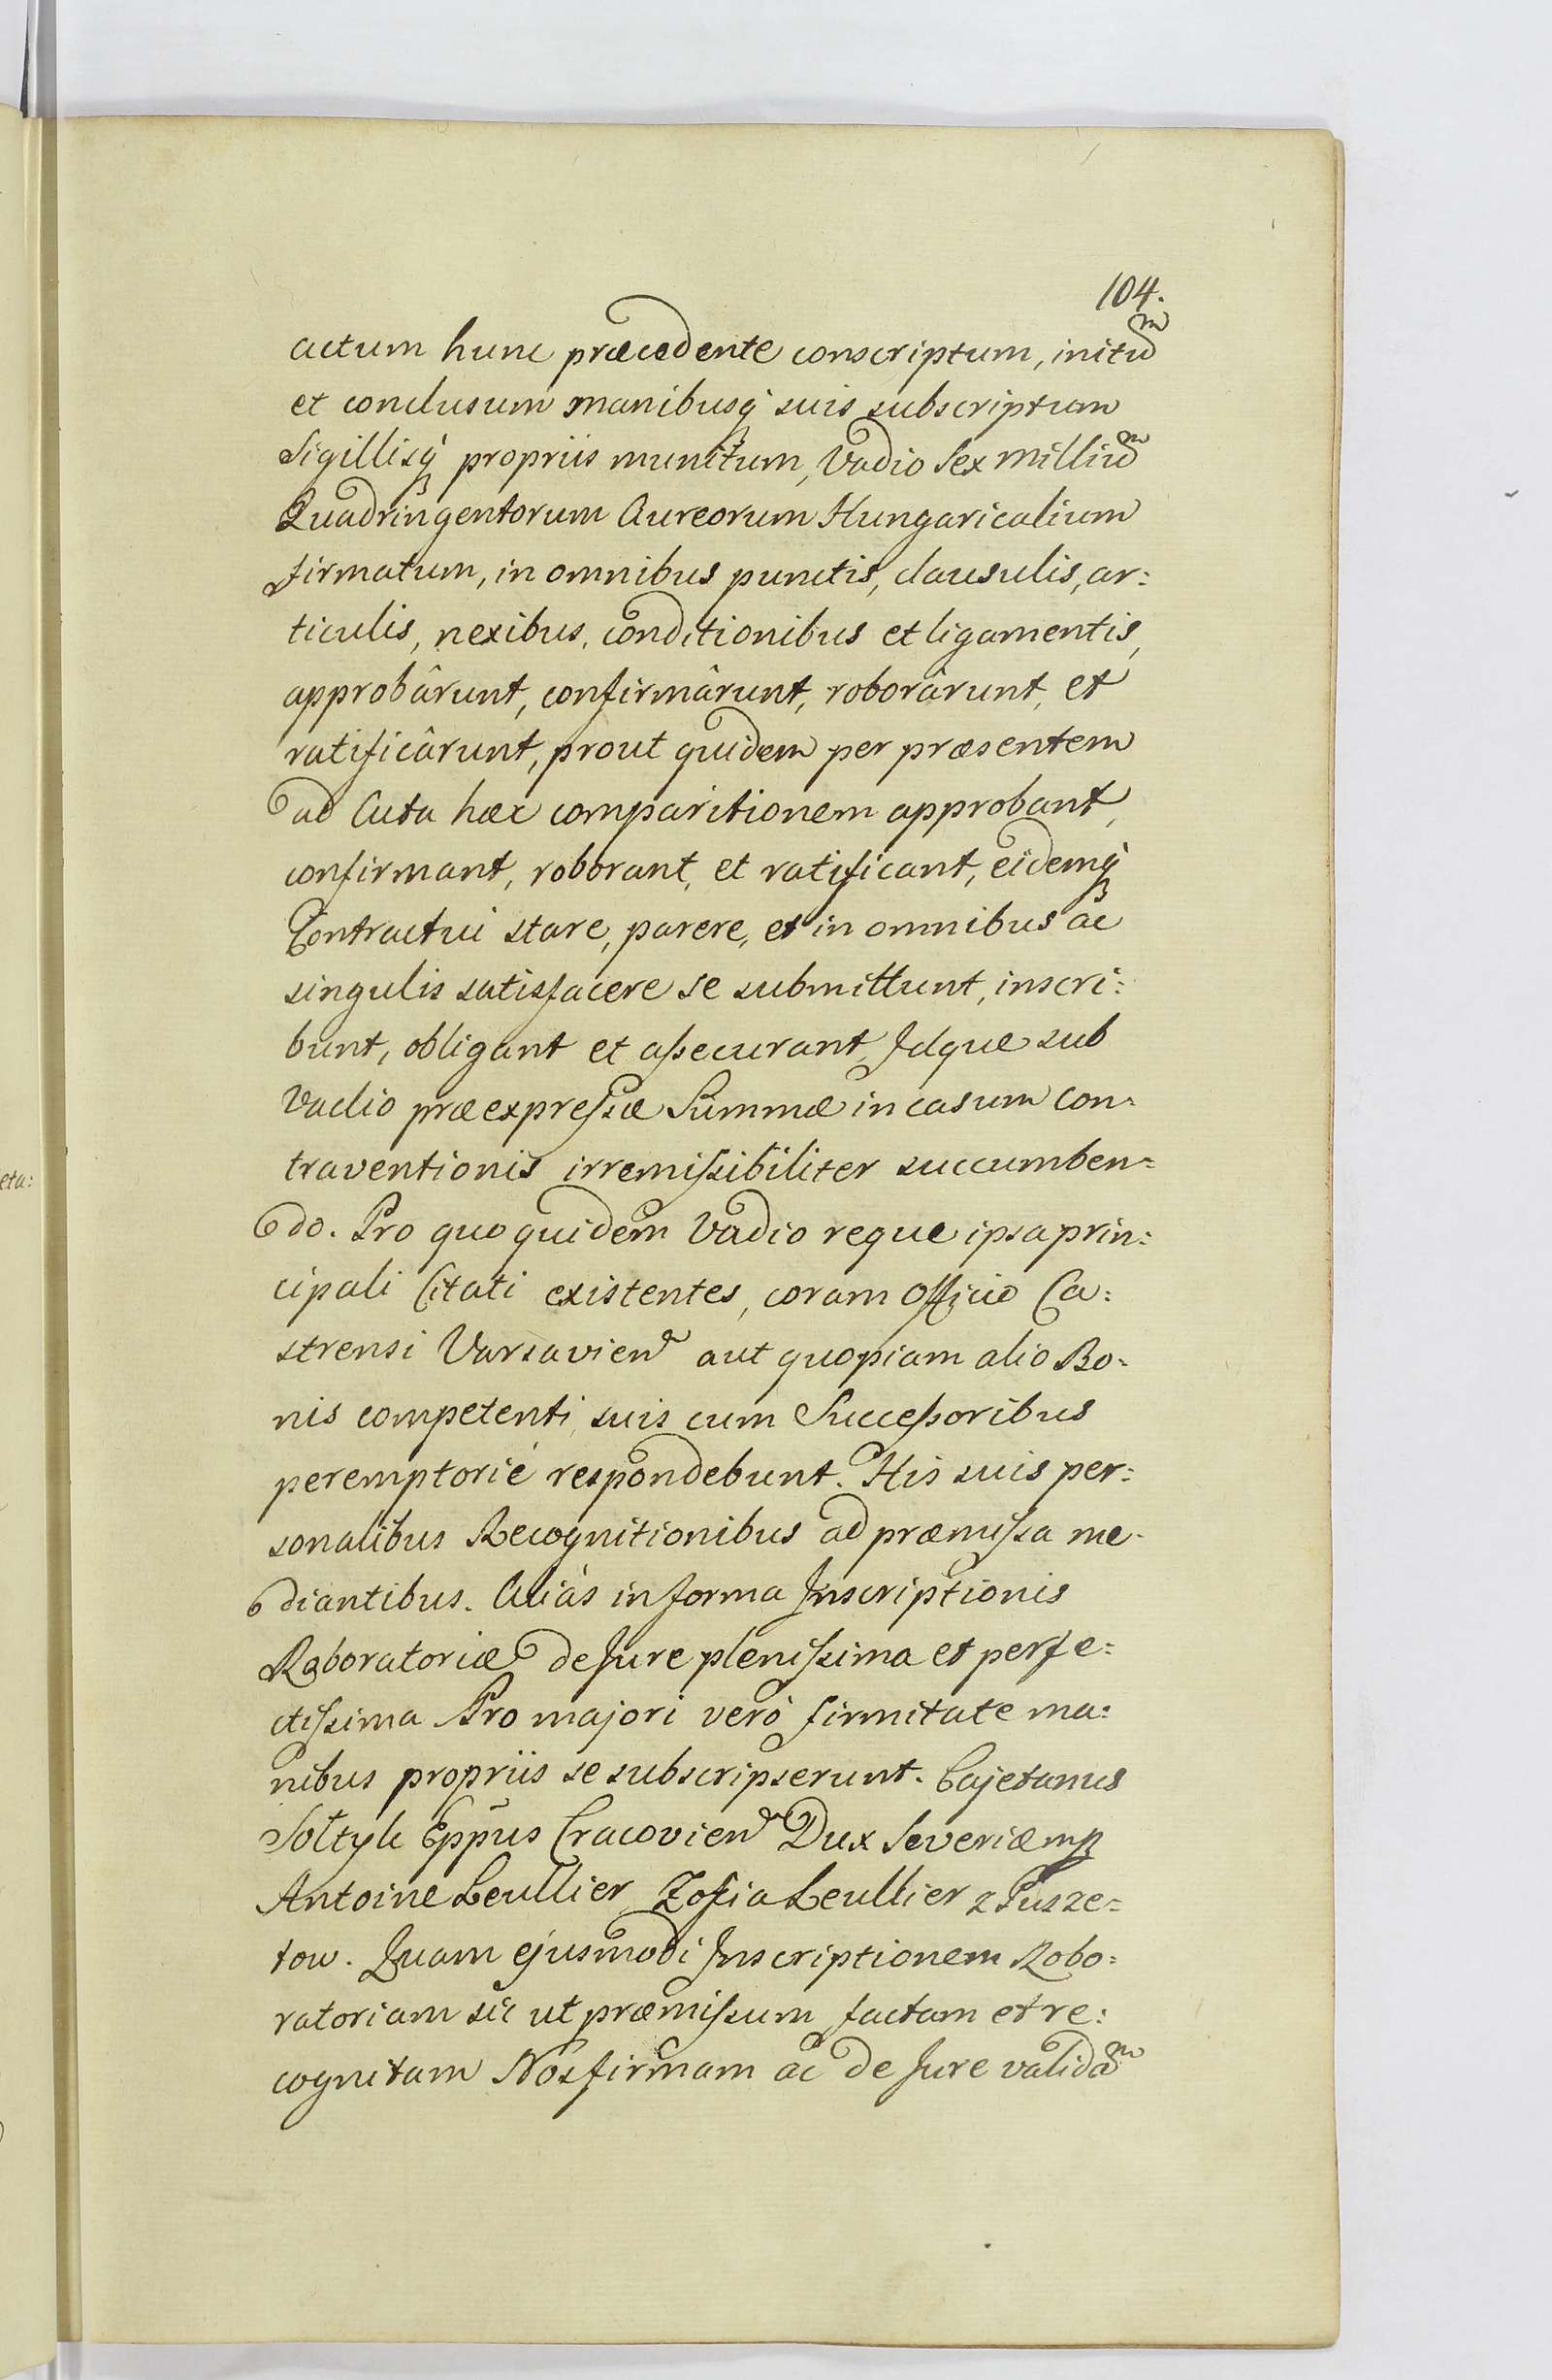 104.
actum hunc præcedente conscriptum, initũ
et conclusum manibusq̃ suis subscriptum
Sigillisq̃ propriis munitum, Vadio Sex Milliũ
Quadringentorum Aureorum Hungaricalium
firmatum, in omnibus punctis, clausulis, ar:
ticulis, nexibus, conditionibus et ligamentis,
approbârunt, confirmârunt, roborârunt, et
ratificârunt, prout quidem per præsentem
ad Acta hæc comparitionem approbant,
confirmant, roborant, et ratificant, eidemq̃
Contractui stare, parere, et in omnibus ac
singulis satisfacere se submittunt, inscri:
bunt, obligant et aſsecurant, Idque sub
Vadio præexpreſsæ Summæ in casum Con:
traventionis irremiſsibiliter succumben=
do. Pro quo quidem Vadio reque ipsa prin:
cipali Citati existentes, coram Officio Ca:
strensi Varsavien̄ aut quopiam alio Bo:
nis competenti, suis cum Succeſsoribus
peremptoriè respondebunt. His suis per:
sonalibus Recognitionibus ad præmiſsa me-
diantibus. Aliàs in forma Inscriptionis
Roboratoriæ de Jure pleniſsima et perfe:
ctiſsima Pro majori verò firmitate ma:
nibus propriis se subscripserunt. Cajetanus
Sołtyk Epp̄us Cracovien̄ Dux Severiæ mp
Antoine Leullier, Zofia Leullier z Pusze=
tow. Quam ejusmodi Inscriptionem Robo:
ratoriam sic ut præmiſsum factam et re:
cognitam Nos firmam ac de Jure validã
eta: